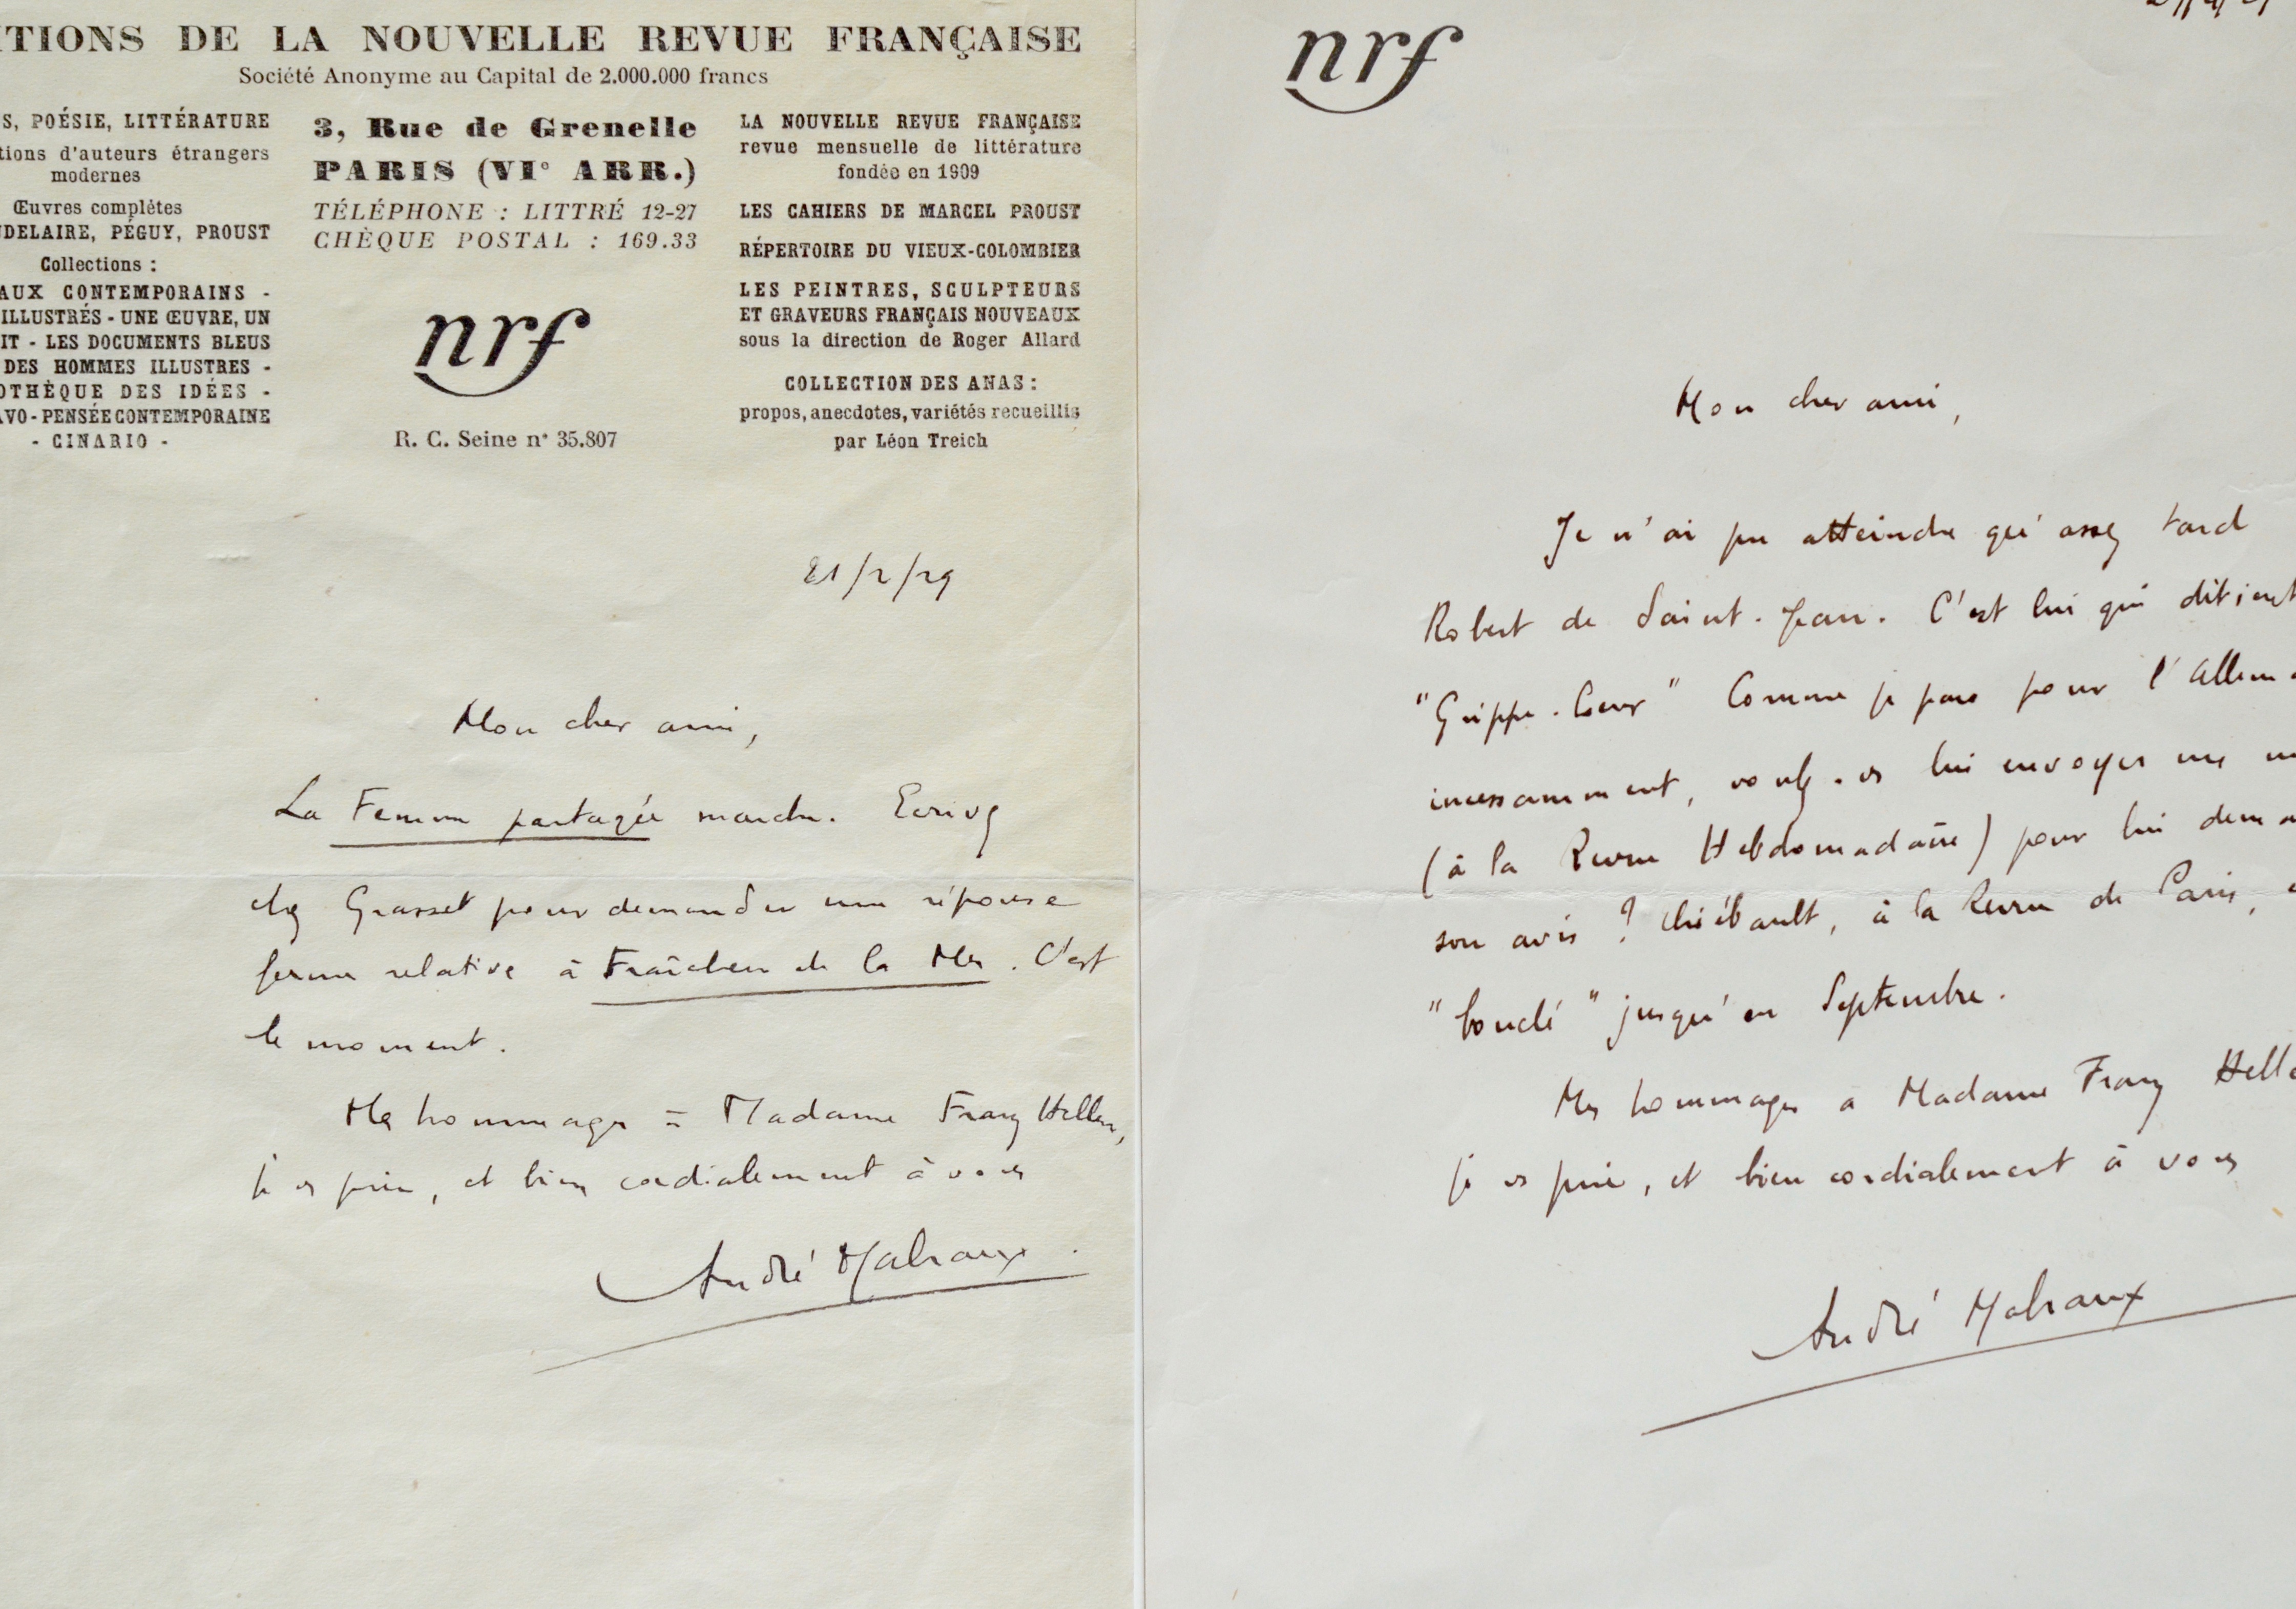 TIONS DE LA NOUVELLE REVUE FRANÇAISE
Société Anonyme au Capital de 2.000.000 francs
S, POÉSIE, LITTÉRATURE
tions d'auteurs étrangers
modernes
Œuvres complètes
DELAIRE, PÉGUY, PROUST
Collections :
AUX CONTEMPORAINS -
ILLUSTRÉS - UNE ŒUVRE, UN
IT - LES DOCUMENTS BLEUS
DES HOMMES ILLUSTRES -
OTHÈQUE DES IDÉES -
AVO - PENSÉE CONTEMPORAINE
- CINARIO -
3, Rue de Grenelle
PARIS (VIe ARR.)
TÉLÉPHONE : LITTRÉ 12-27
CHÈQUE POSTAL : 169.33
nrf
R. C. Seine n° 35.807
LA NOUVELLE REVUE FRANÇAISE
revue mensuelle de littérature
fondée en 1909
LES CAHIERS DE MARCEL PROUST
RÉPERTOIRE DU VIEUX-COLOMBIER
LES PEINTRES, SCULPTEURS
ET GRAVEURS FRANÇAIS NOUVEAUX
sous la direction de Roger Allard
COLLECTION DES ANAS :
propos, anecdotes, variétés recueillis
par Léon Treich
21/2/29
Mon cher ami,
La Femme partagée marche. Ecrivez
chez Grasset pour demander une réponse
ferme relative à Fraîcheur de la Mer. C'est
le moment.
Mes hommages à Madame Franz Hellens,
je vs prie, et bien cordialement à vous
André Malraux.
nrf
Mon cher ami,
Je n'ai pu atteindre qu'assez tard
Robert de Saint-Jean. C'est lui qui détient
"Grippe-Cœur" Comme je pars pour l'Allema
incessamment, voulez-vs lui envoyer un m
(à la Revue Hebdomadaire) pour lui dema
son avis ? Thiébault, à la Revue de Paris,
"bouclé" jusqu'en Septembre.
Mes hommages à Madame Franz Helle
je vs prie, et bien cordialement à vous
André Malraux